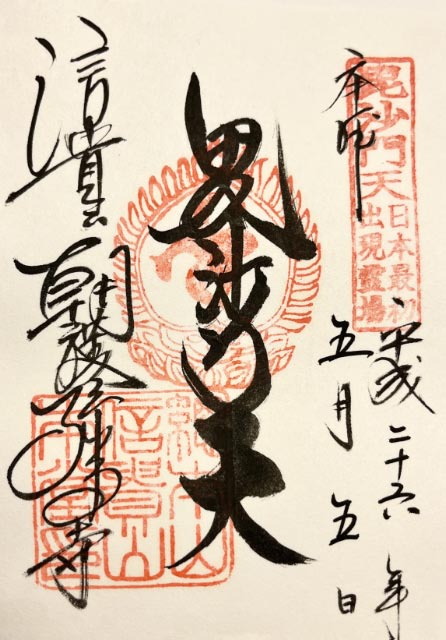 奉拝
毘沙門天
日本最初
出現霊場
平成二十六年
五月五日
毘沙門天
信貴山
朝護孫子寺
信貴山